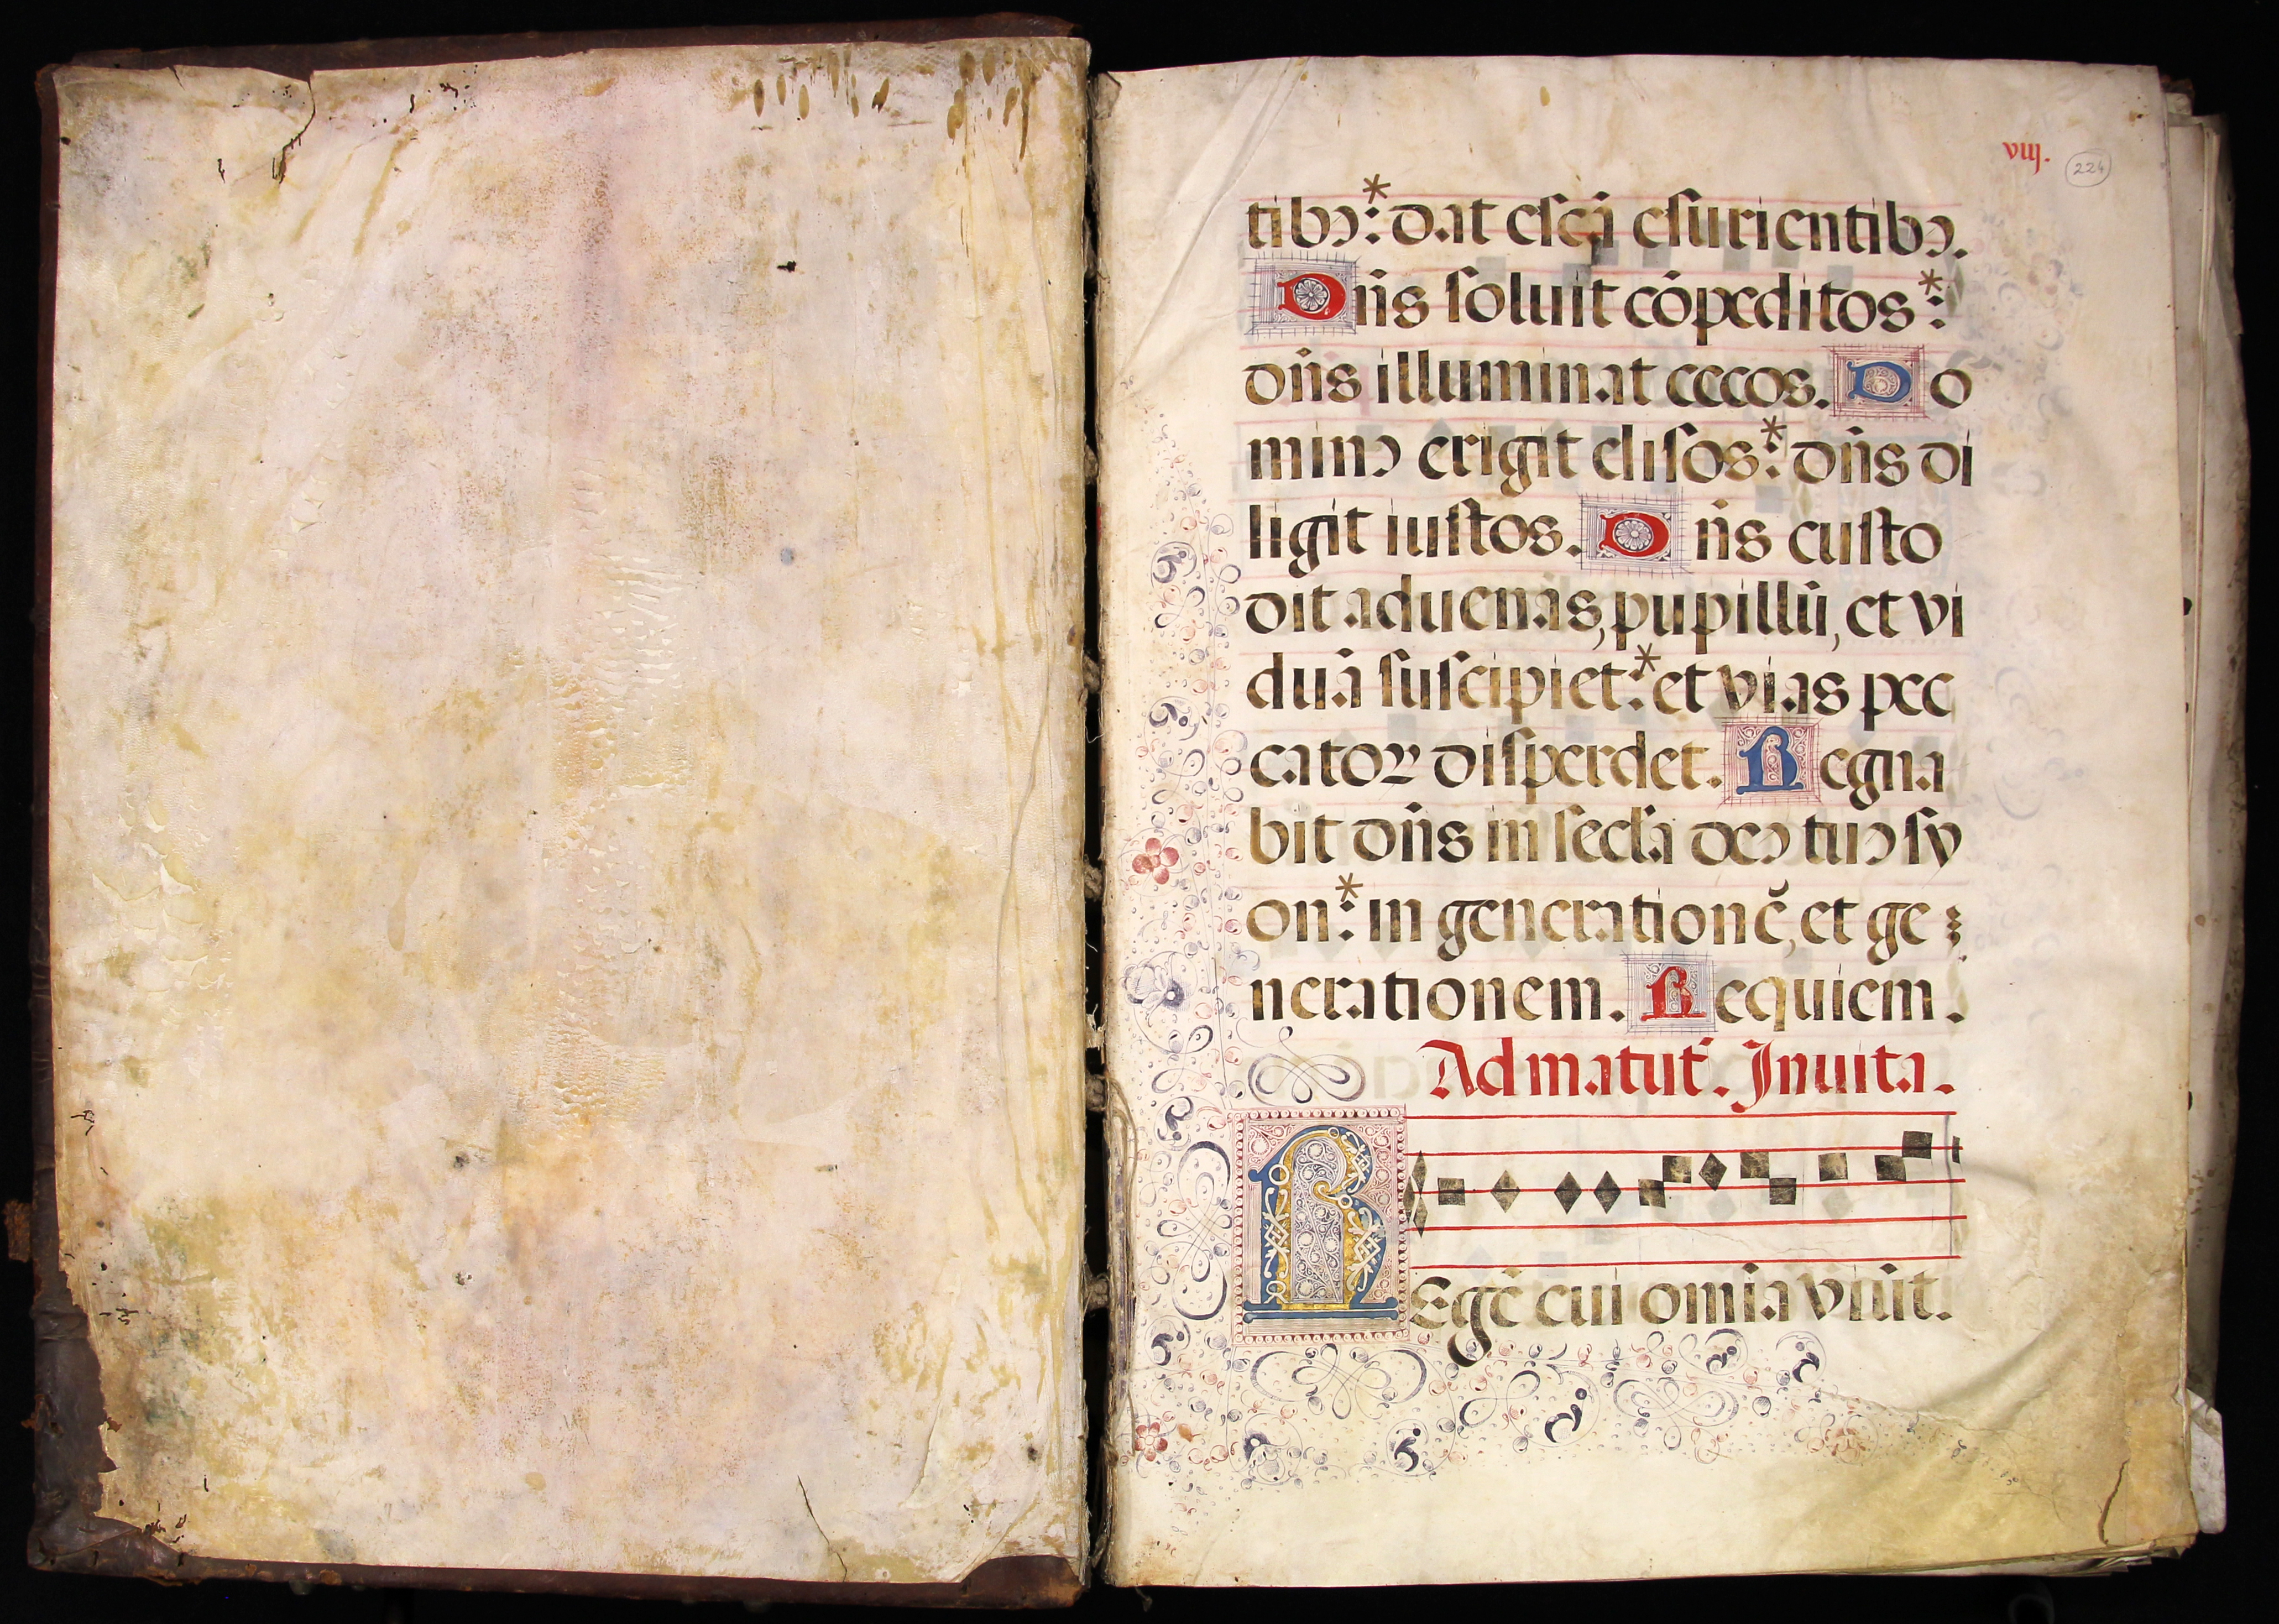 viij.
224
tibꝰ:* dat escā esurientibꝰ.
Dn̄s soluit cōpeditos*:
dn̄s illuminat cecos. Do
minꝰ erigit elisos:* dn̄s di
ligit iustos. Dn̄s custo
dit aduenas, pupillū, et vi
duā suscipiet:* et vias pec
cator disperdet. Regna
bit dn̄s in secl̄a deꝰ tuꝰ sy
on:* in generationē, et ge
nerationem. Requiem.
Ad matut̄. Inuita.
REgē cui om̄ia viuūt.